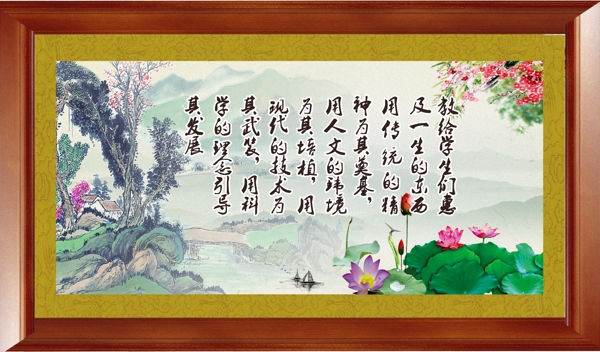 教给学生们惠
及一生的东西
用传统的精
神为其奠基，
用人文的环境
为其培植，用
现代的技术为
其武装，用科
学的理念引导
其发展